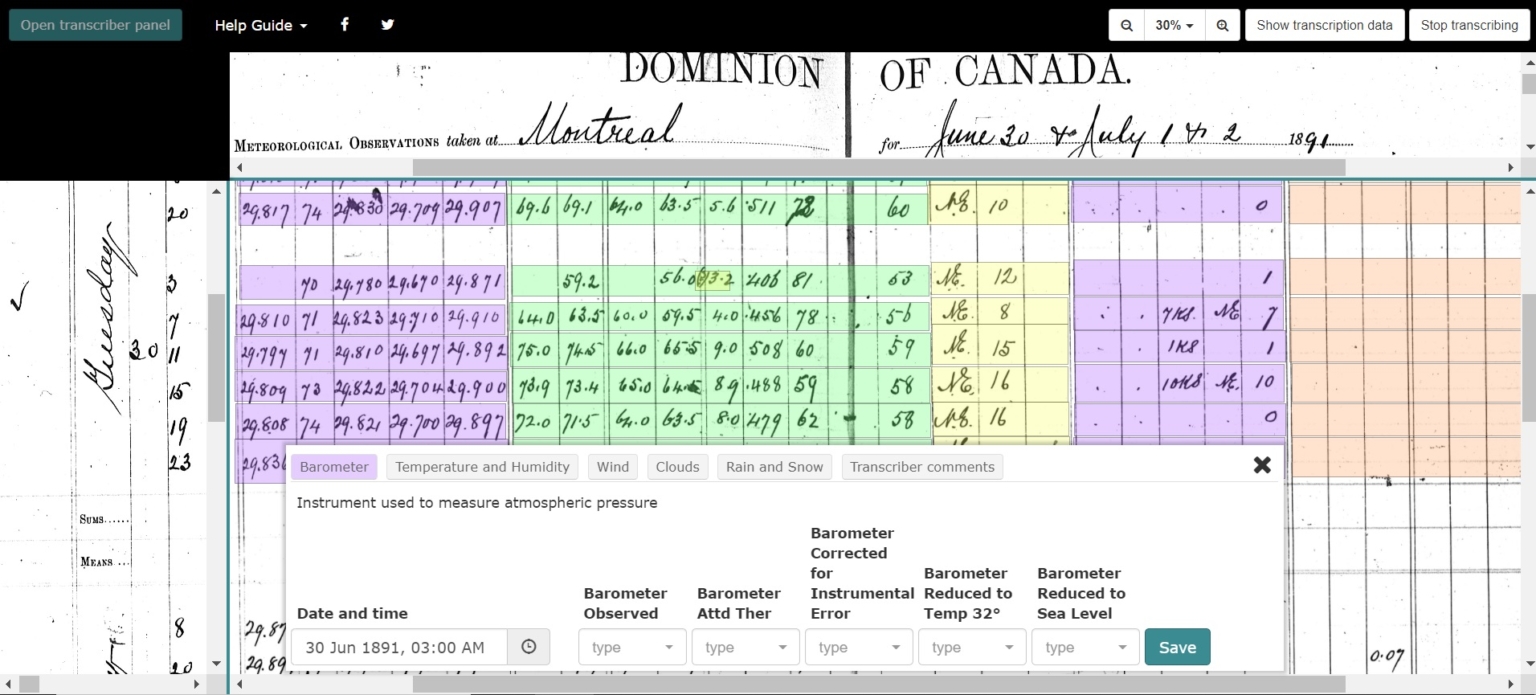 Open transcriber panel Help Guide 30% Show transcription data Stop transcribing
DOMINION OF CANADA.
METEOROLOGICAL OBSERVATIONS taken at Montreal for June 30 & July 1 & 2 1891
20 29.817 74 29.830 29.709 29.907 69.6 69.1 64.0 63.5 5.6 .511 72 60 N.E. 10 0
Tuesday
3 70 29.780 29.670 29.871 59.2 56.0 3.2 .406 81 53 N.E. 12 1
7 29.810 71 29.823 29.710 29.910 64.0 63.5 60.0 59.5 4.0 .456 78 56 N.E. 8 7KS N.E. 7
30 11 29.797 71 29.810 29.697 29.892 75.0 74.5 66.0 65.5 9.0 508 60 59 N.E. 15 1KS 1
15 29.809 73 29.822 29.704 29.900 73.9 73.4 65.0 64.5 8.9 .488 59 58 N.E. 16 10KS N.E. 10
19 29.808 74 29.821 29.700 29.897 72.0 71.5 64.0 63.5 8.0 .479 62 58 N.E. 16 0
23 29.836
Barometer Temperature and Humidity Wind Clouds Rain and Snow Transcriber comments
Instrument used to measure atmospheric pressure
SUMS......
MEANS ...
Date and time
Barometer Observed
Barometer Attd Ther
Barometer Corrected for Instrumental Error
Barometer Reduced to Temp 32°
Barometer Reduced to Sea Level
30 Jun 1891, 03:00 AM type type type type type Save
8 29.87
20 29.89 0.07